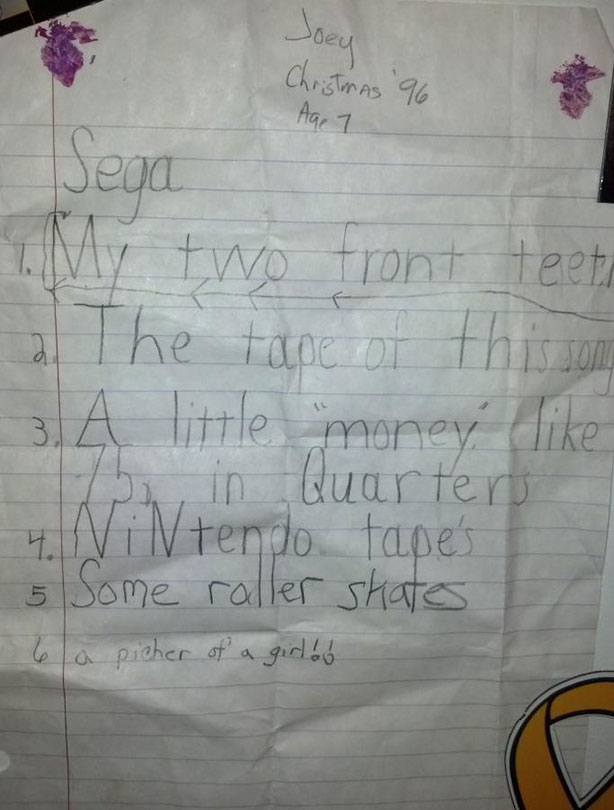 Joey
Christmas '96
Age 7
Sega
1. "My two front teeth
2. The tape of this song
3. A little "money" like
75, in Quarters
4. NiNtendo tape's
5 Some roller skates
6 a picher of a girl!!